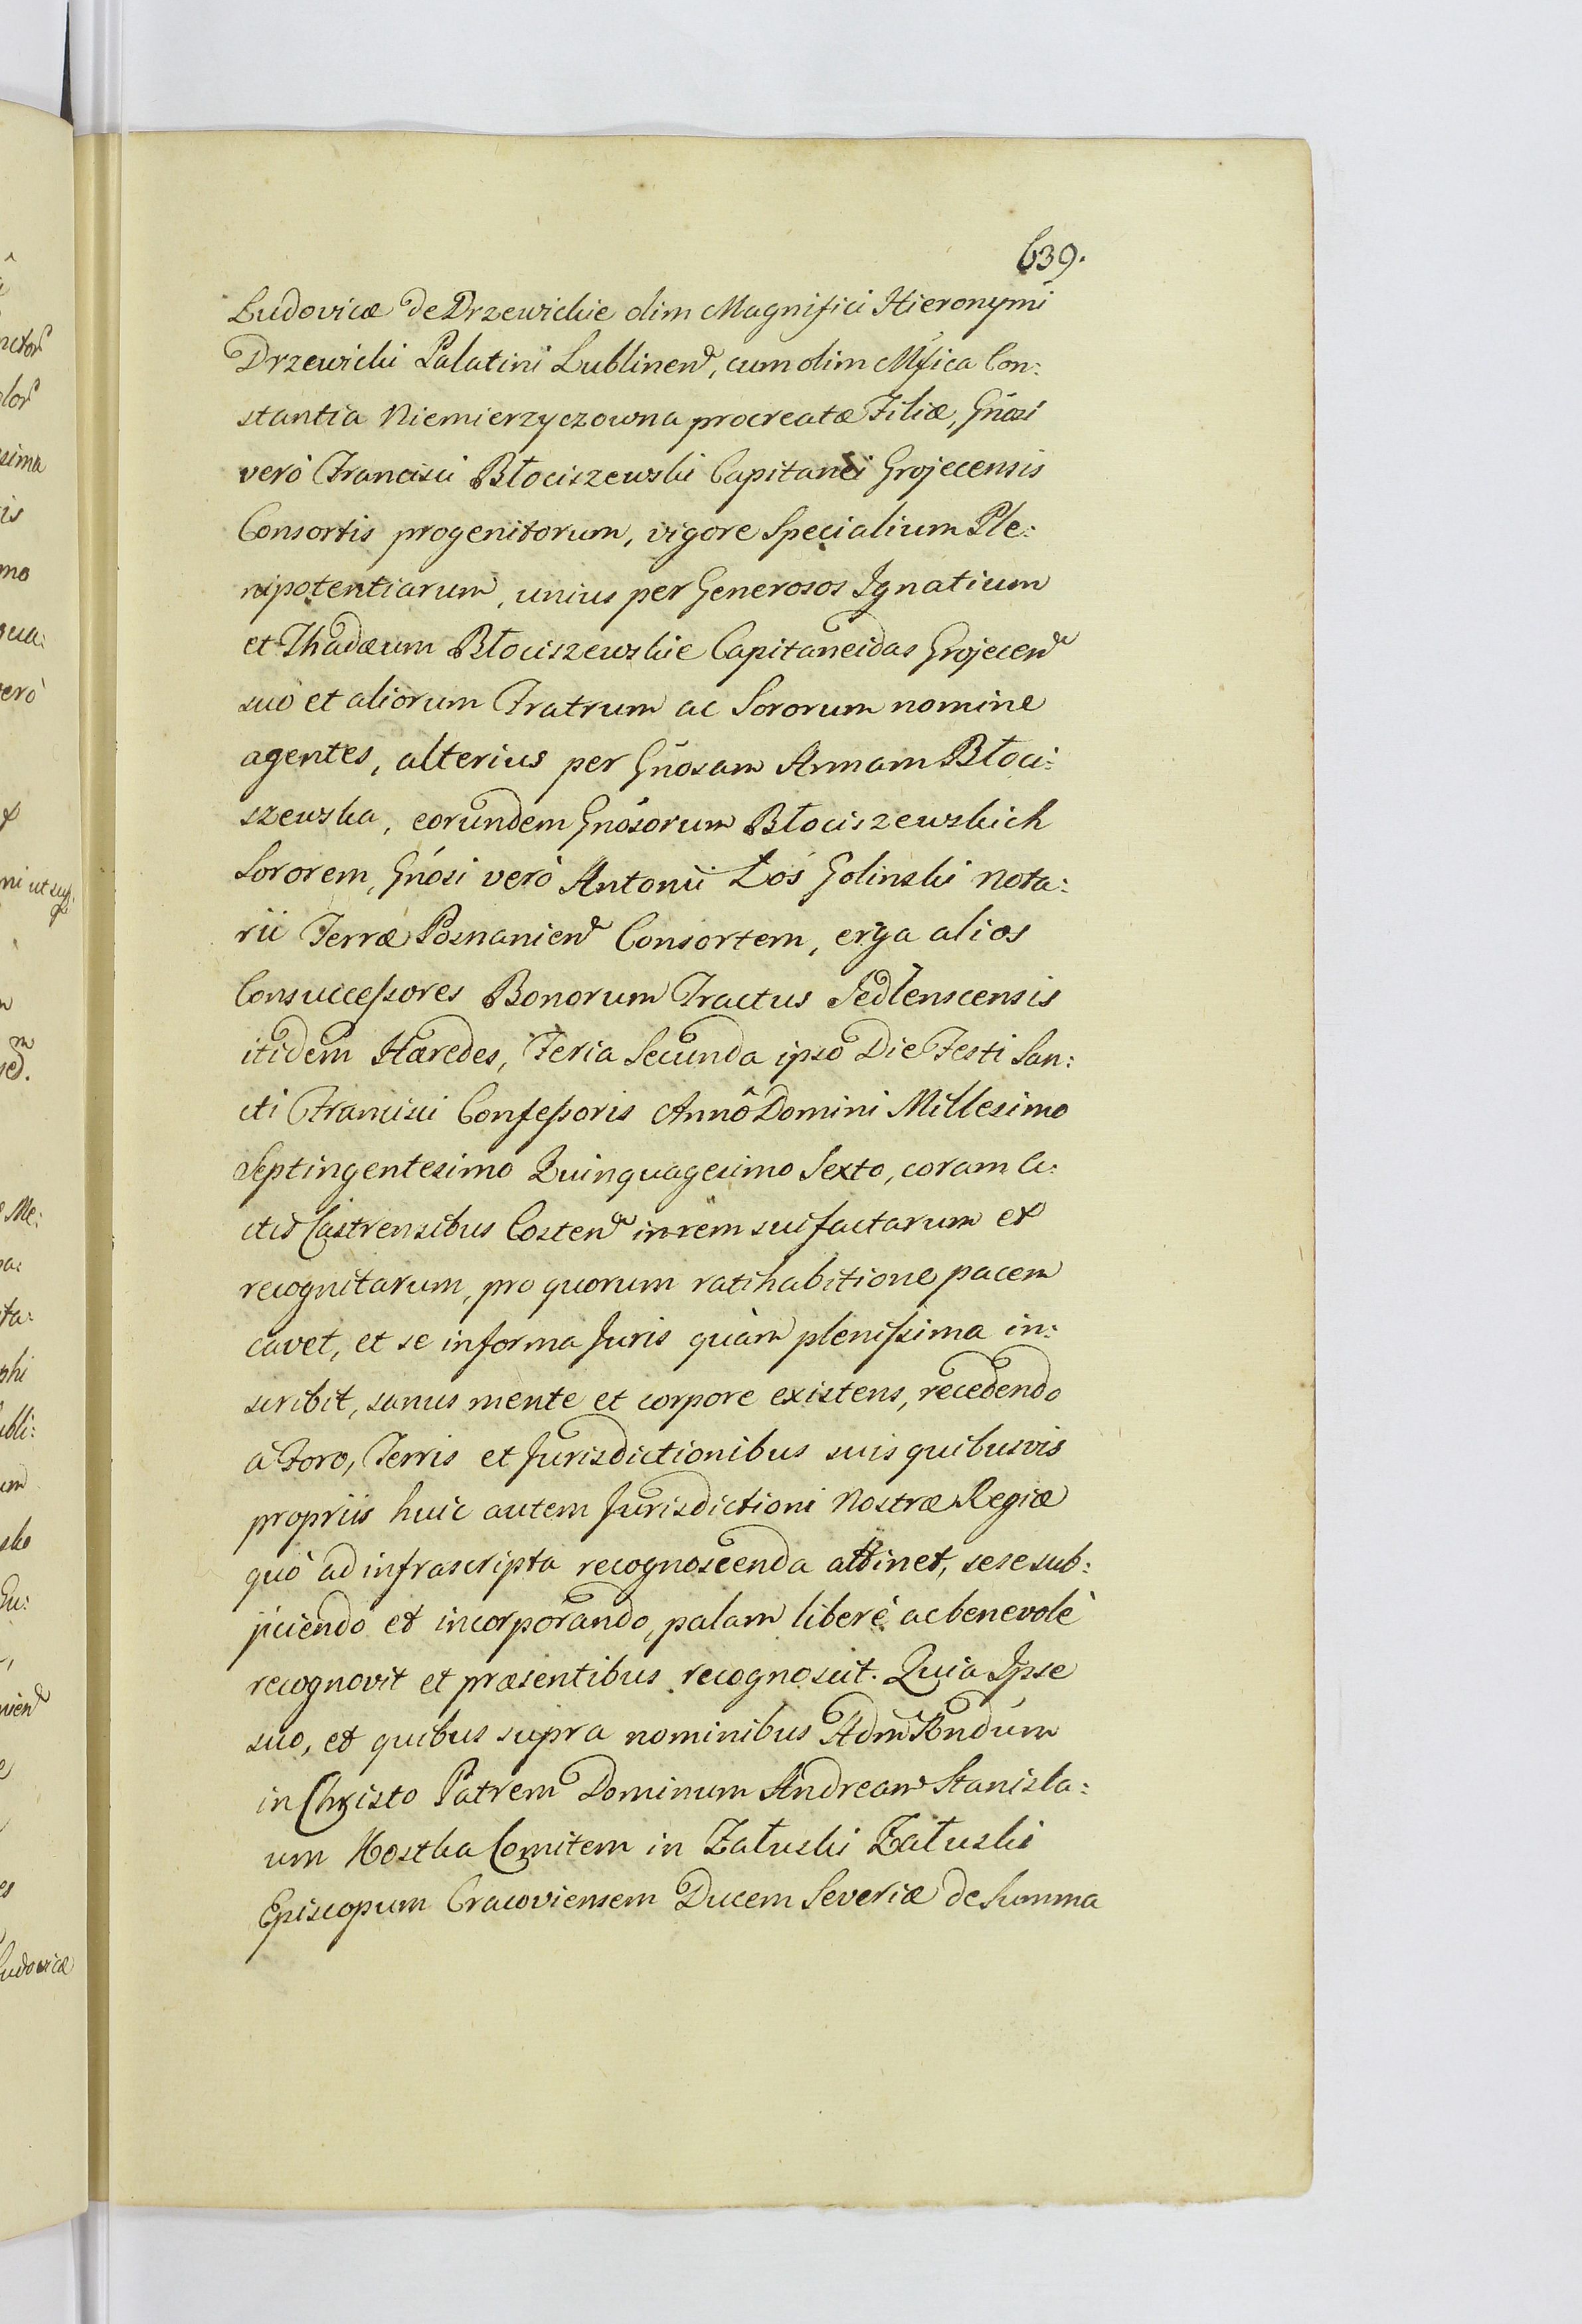 639.
Ludovicæ de Drzewickie olim Magnifici Hieronymi
Drzewicki Palatini Lublinen, cum olim Mfica Con:
stantia Niemierzyczowna procreatæ Filiæ, Gnosi
verò Francisci Błociszewski Capitanei Grojecensis
Consortis progenitorum, vigore Specialium Ple:
nipotentiarum, unius per Generosos Ignatium
et Thadæum Błociszewskie Capitaneidas Grojecen
suo et aliorum Fratrum ac Sororum nomine
agentes, alterius per Gnosam Annam Błoci:
szewska, eorundem Gnosorum Błociszewskich
Sororem, Gnosi verò Antonii Łos Golinski Nota:
rii Terræ Posnanien Consortem, erga alios
Consuccessores Bonorum Tractus Jedlenscensis
itidem Hæredes, Feria Secunda ipso Die Festi San:
cti Francisci Confessoris Annô Domini Millesimo
Septingentesimo Quinquagesimo Sexto, coram A:
ctis Castrensibus Costen in rem sui factarum et
recognitarum, pro quorum ratihabitione pacem
cavet, et se in forma Juris quàm plenissima in:
scribit, sanus mente et corpore existens, recedendo
à Foro, Terris et Jurisdictionibus suis quibusvis
propriis huic autem Jurisdictioni Nostræ Regiæ
quò ad infrascripta recognoscenda attinet, sese sub:
jiciendo et incorporando, palam liberè ac benevolè
recognovit et præsentibus recognoscit. Quia Ipse
suo, et quibus supra nominibus Adm Rndum
in Christo Patrem Dominum Andream Stanisla:
um Kostka Comitem in Załuski Załuski
Episcopum Cracoviensem Ducem Severiæ de Summa